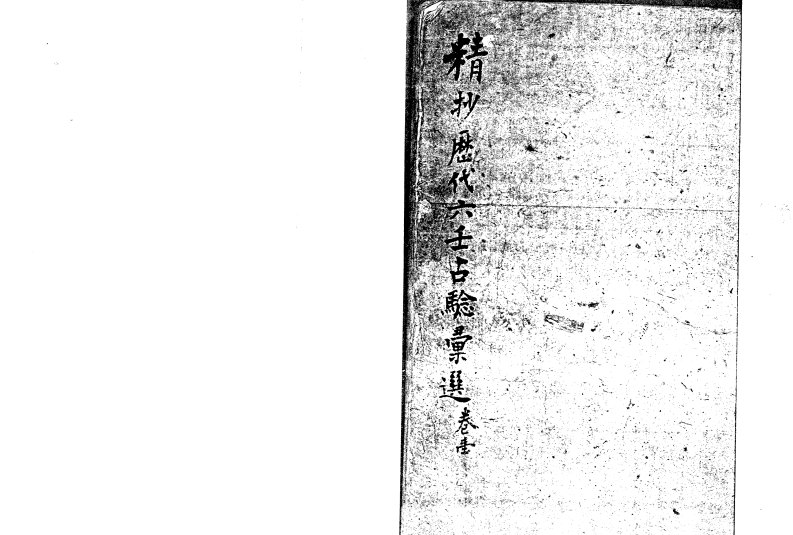 精抄歷代六壬占驗彙選卷壹